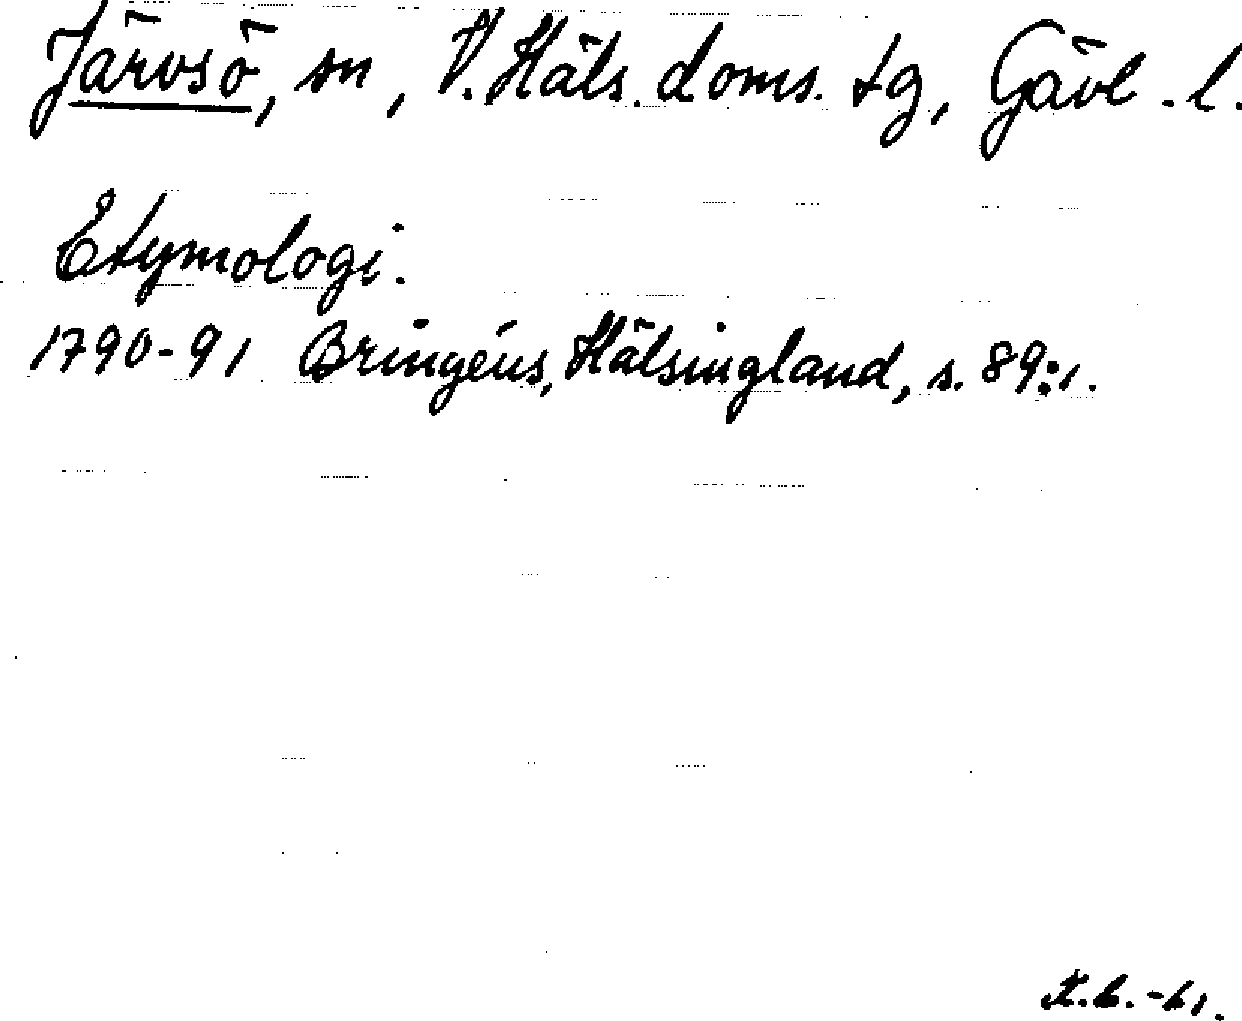 Järvsö, sn, V. Häls. doms. tg, Gävl. l.
Etymologi.
1790-91 Bringéus, Hälsingland, s. 89:1.